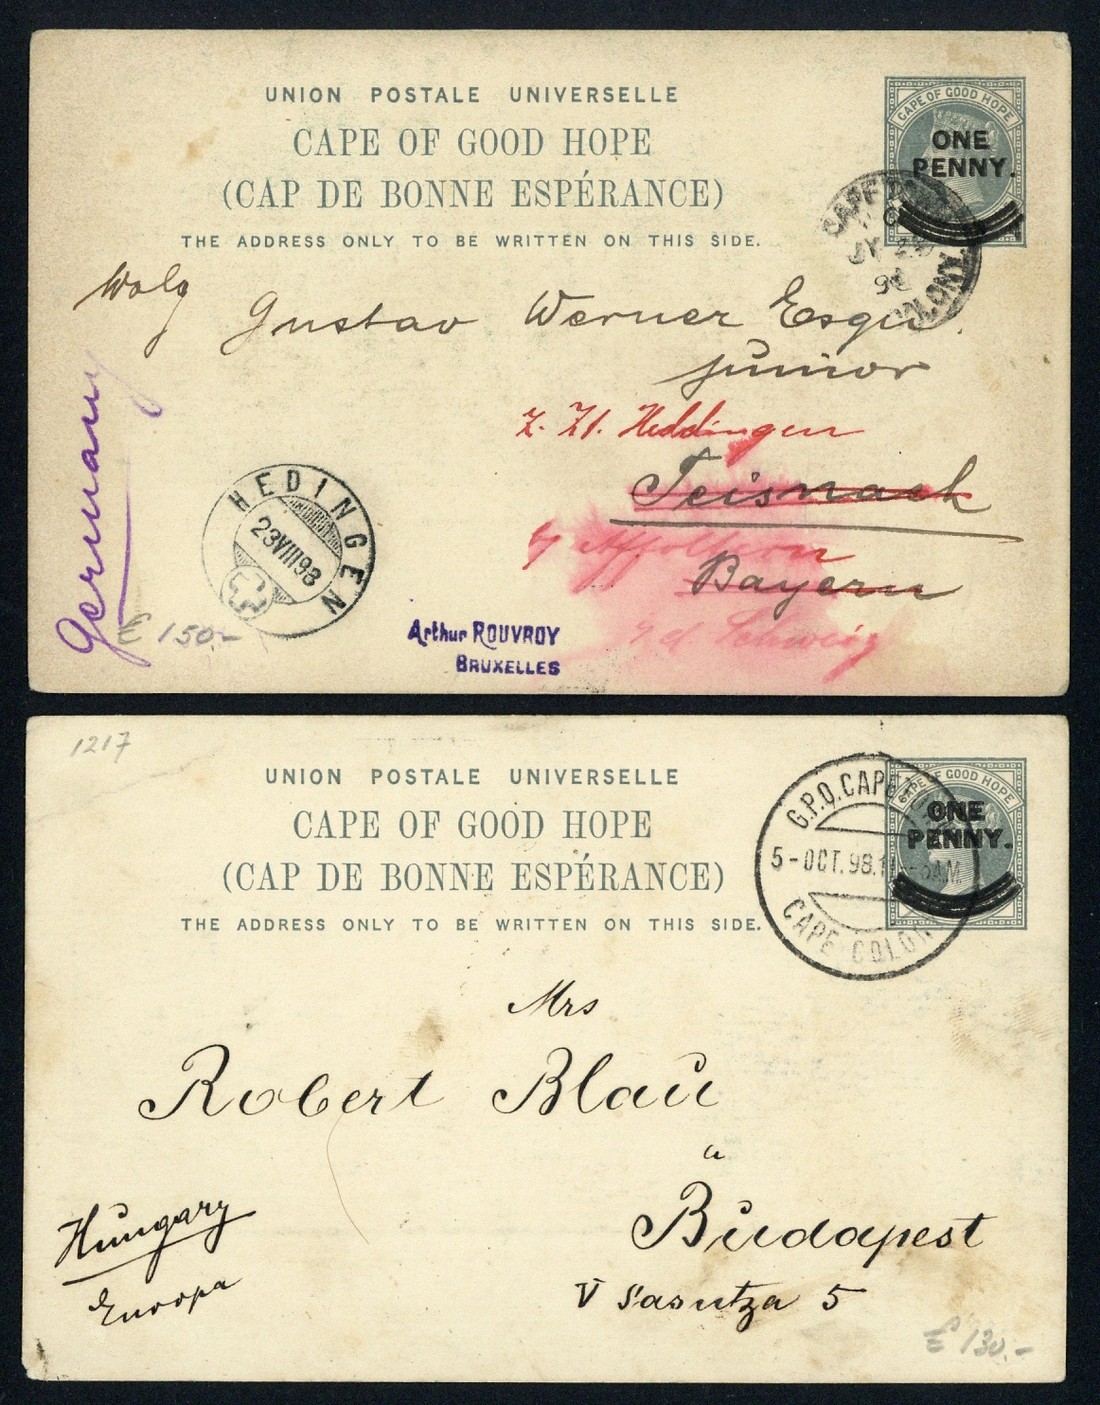 UNION POSTALE UNIVERSELLE
CAPE OF GOOD HOPE
(CAP DE BONNE ESPÉRANCE)
THE ADDRESS ONLY TO BE WRITTEN ON THIS SIDE.
CAPE OF GOOD HOPE
ONE
PENNY.
CAPE
JY 29
COLONY.
Gustav Werner Esqu.
junior
z. Zt. Heddingen
Teisnach
Affoltern
Bayern
Schweiz
Germany
HEDINGEN
23 VIII 98
€ 150.-
Arthur ROUVROY
BRUXELLES
1217
UNION POSTALE UNIVERSELLE
CAPE OF GOOD HOPE
(CAP DE BONNE ESPÉRANCE)
THE ADDRESS ONLY TO BE WRITTEN ON THIS SIDE.
CAPE OF GOOD HOPE
ONE
PENNY.
G.P.O. CAPE
5-OCT.98
CAPE COLON
Mrs
Robert Blau
Budapest
V Sasutza 5
Hungary
Europa
€ 130.-